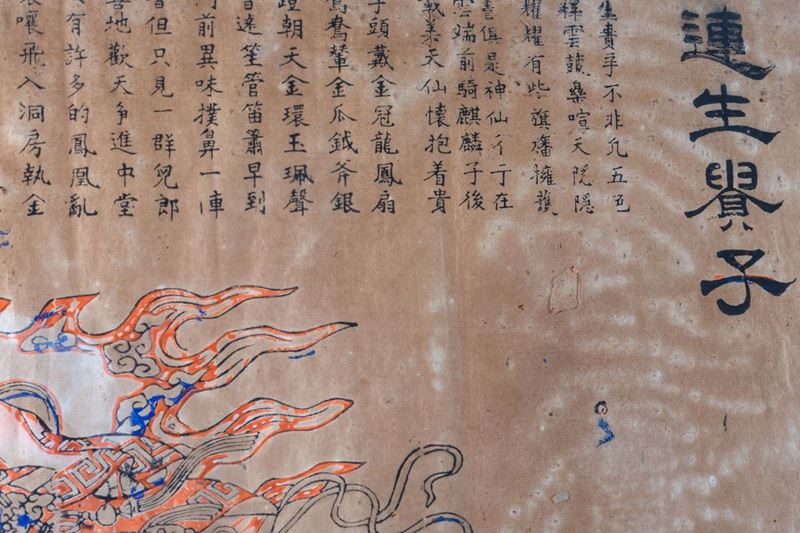 連生貴子
生貴子不非凡五色
祥雲鼓樂喧天隱隱
耀耀有些旗旛擁護
俱是神仙行于在
雲端前騎麒麟子後
天仙懷抱着貴
子頭戴金冠龍鳳扇
鴛鴦輦金瓜鉞斧銀
蹬朝天金環玉珮聲
笙管笛簫早到
門前異味撲鼻一陣
香但只見一群兒郎
喜地歡天爭進中堂
有許多的鳳凰亂
嚷飛入洞房執金